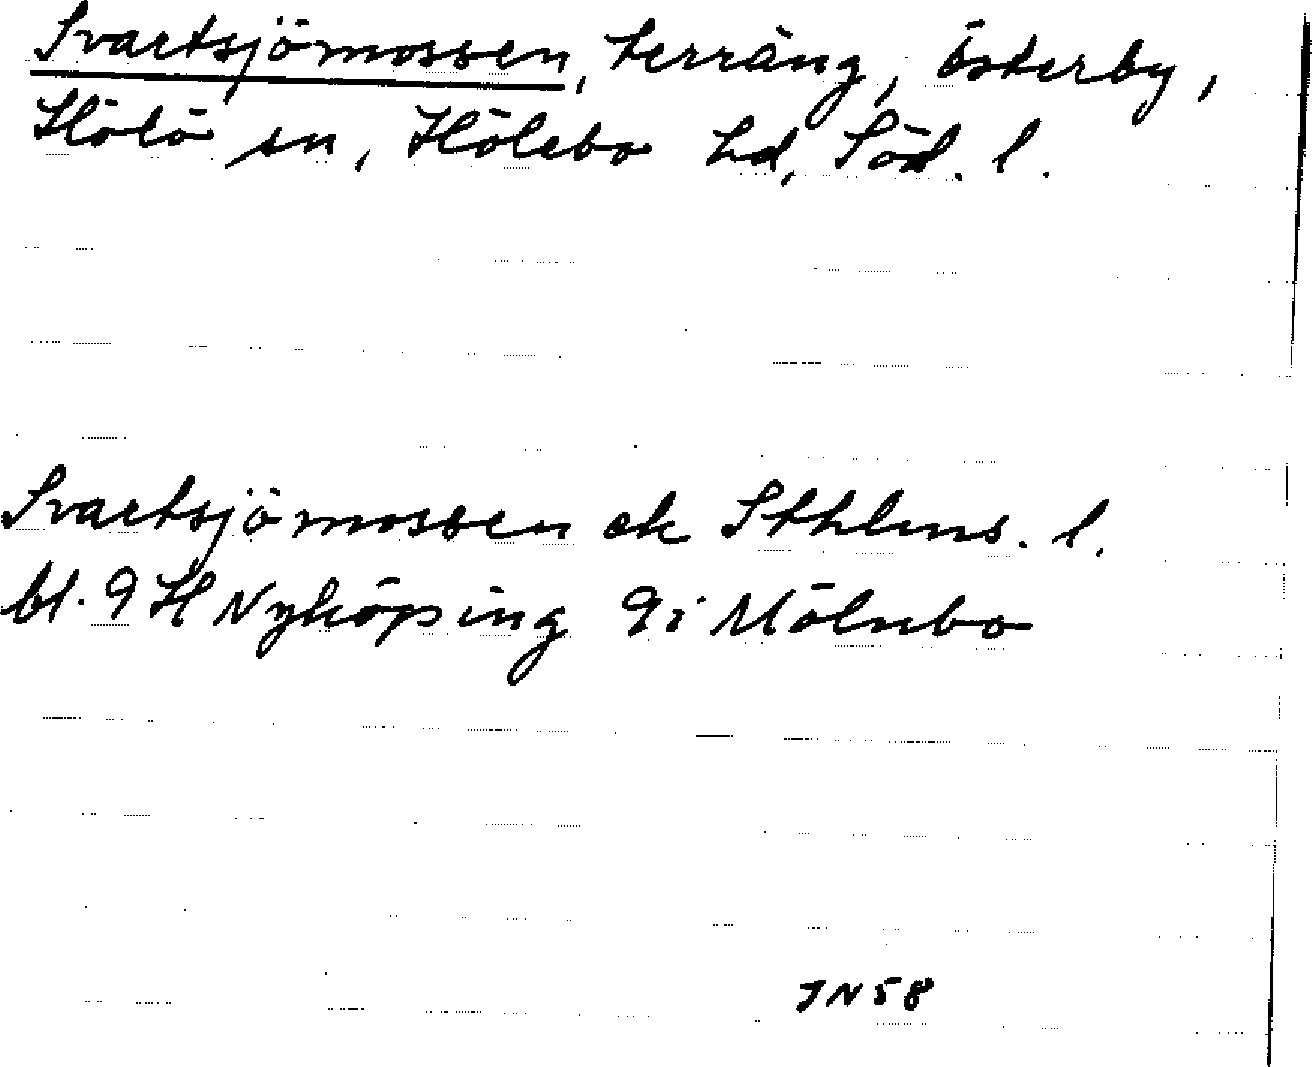 Svartsjömossen, terräng, Österby,
Hölö sn, Hölebo hd, Söd. l.
Svartsjömossen ek Sthlms. l.
bl. 9 H Nyköping 9i Mölnbo
JN58